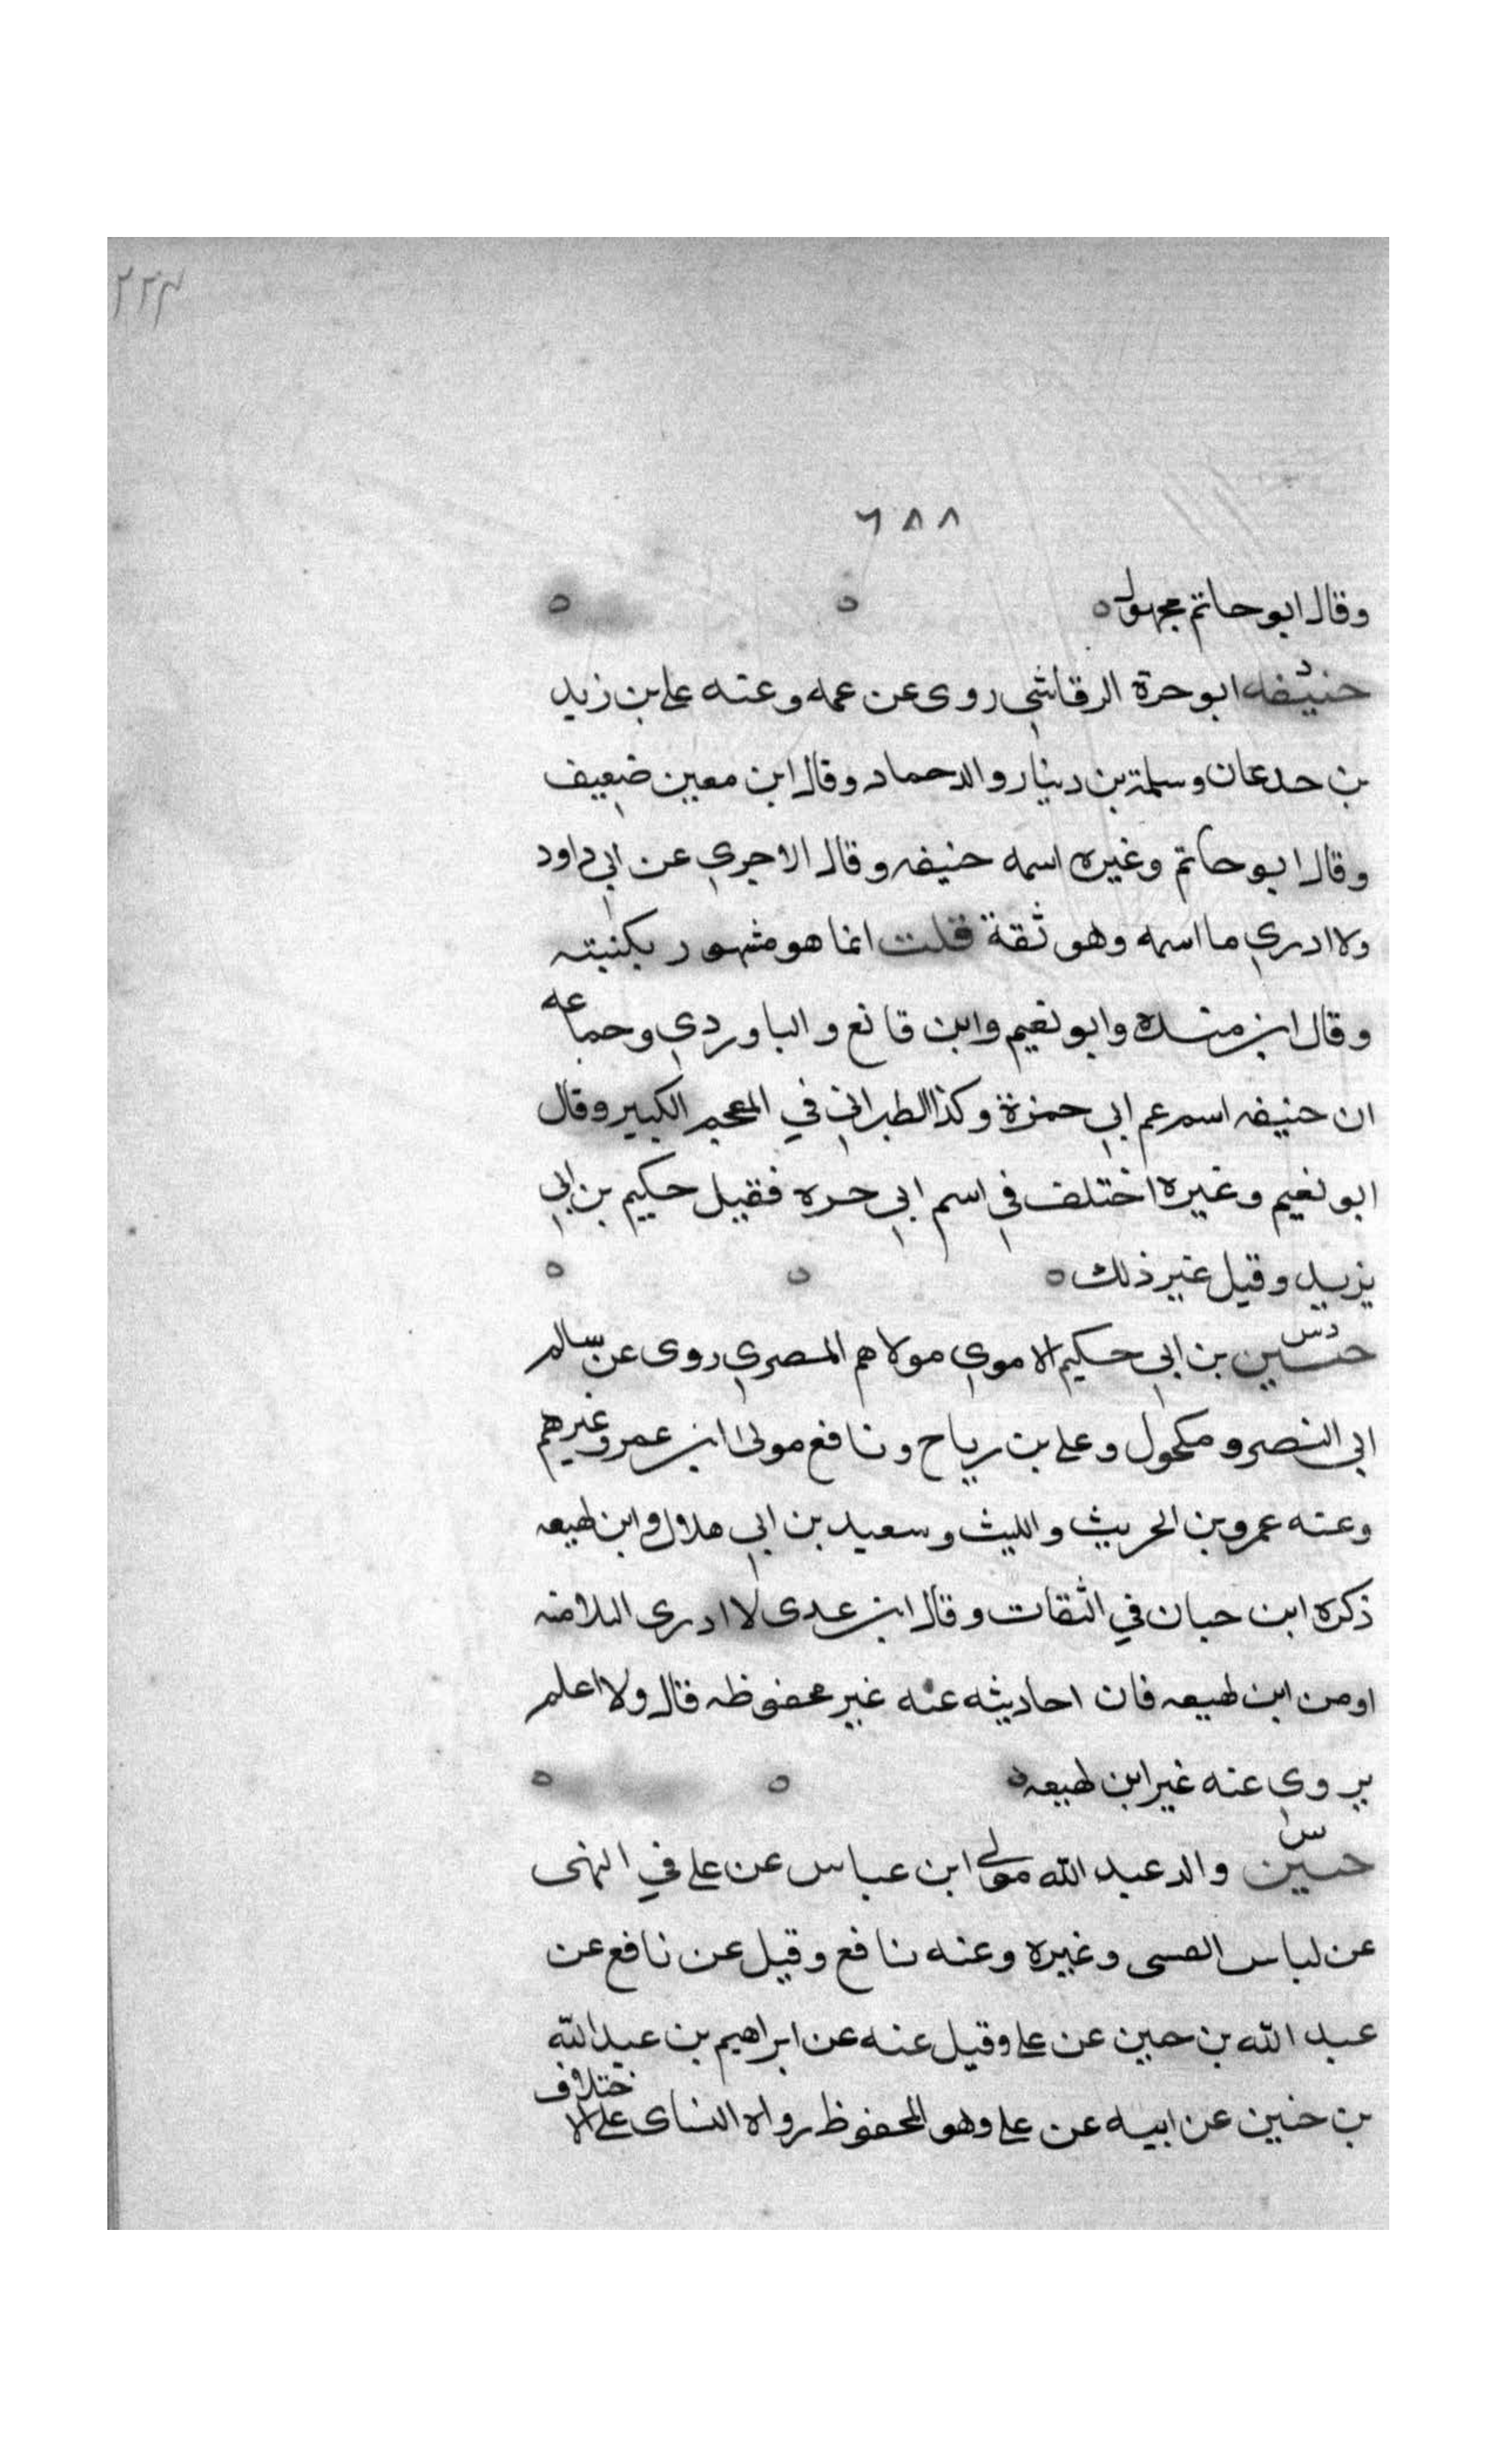 ٢٢٤
٦٨٨
وقال ابو حاتم مجهول ٥ ٥ ٥
د
حنيفه ابو حرة الرقاشي روى عن عمه وعنه علي بن زيد
بن جدعان وسلمة بن دينار والد حماد وقال ابن معين ضعيف
وقال ابو حاتم وغيره اسمه حنيفه وقال الاجري عن ابي داود
ولا ادري ما اسمه وهو ثقة قلت انما هو مشهور بكنيته
وقال ابن منده وابو نعيم وابن قانع والباوردي وجماعه
ان حنيفه اسم عم ابي حمزة وكذا الطبراني في المعجم الكبير وقال
ابو نعيم وغيره اختلف في اسم ابي حره فقيل حكيم بن ابي
يزيد وقيل غير ذلك ٥ ٥ ٥
دس
حنين بن ابي حكيم الاموي مولاهم المصري روى عن سالم
ابي النضر ومكحول وعلي بن رباح ونافع مولى ابن عمر وغيرهم
وعنه عمرو بن الحريث والليث وسعيد بن ابي هلال وابن لهيعه
ذكره ابن حبان في الثقات وقال ابن عدى لا ادرى البلا منه
او من ابن لهيعه فان احاديثه عنه غير محفوظه قال ولا اعلم
يروي عنه غير ابن لهيعه ٥ ٥ ٥
س
حنين والد عبد الله مولى ابن عباس عن علي في النهى
عن لباس القسى وغيره وعنه نافع وقيل عن نافع عن
عبد الله بن حنين عن علي وقيل عنه عن ابراهيم بن عبد الله
بن حنين عن ابيه عن علي وهو المحفوظ رواه النساى على الاختلاف